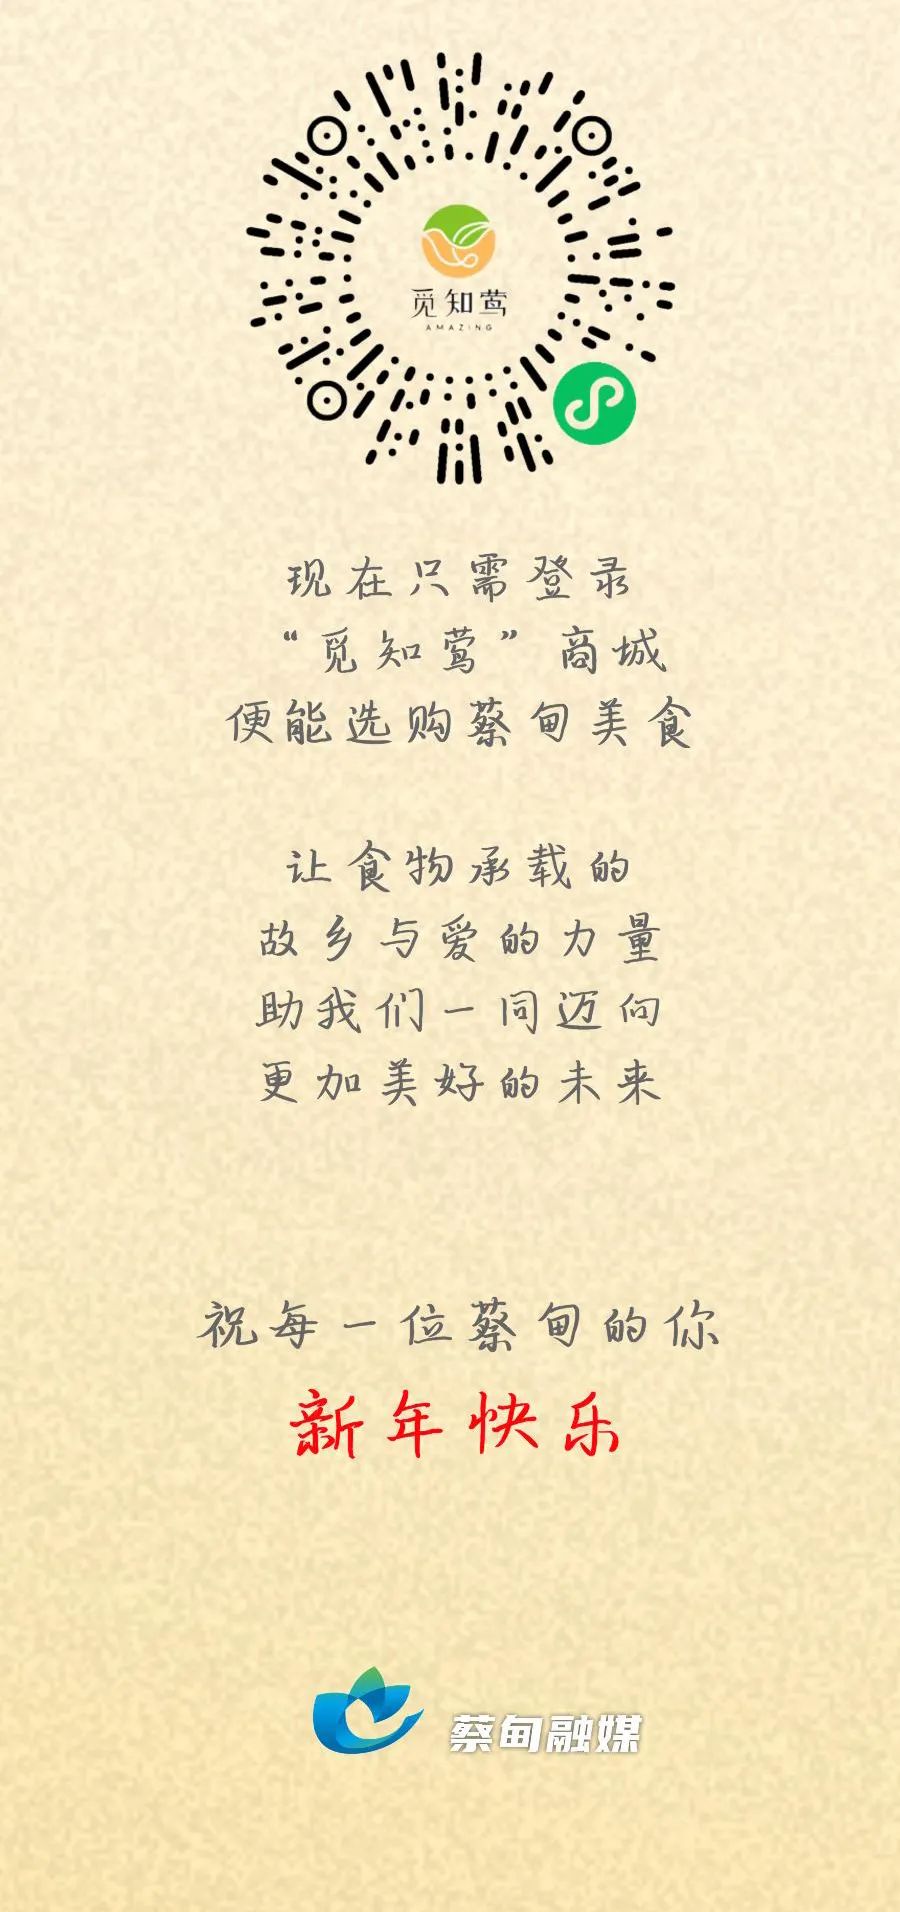 觅知莺
AMAZING
现在只需登录
“觅知莺”商城
便能选购蔡甸美食
让食物承载的
故乡与爱的力量
助我们一同迈向
更加美好的未来
祝每一位蔡甸的你
新年快乐
蔡甸融媒